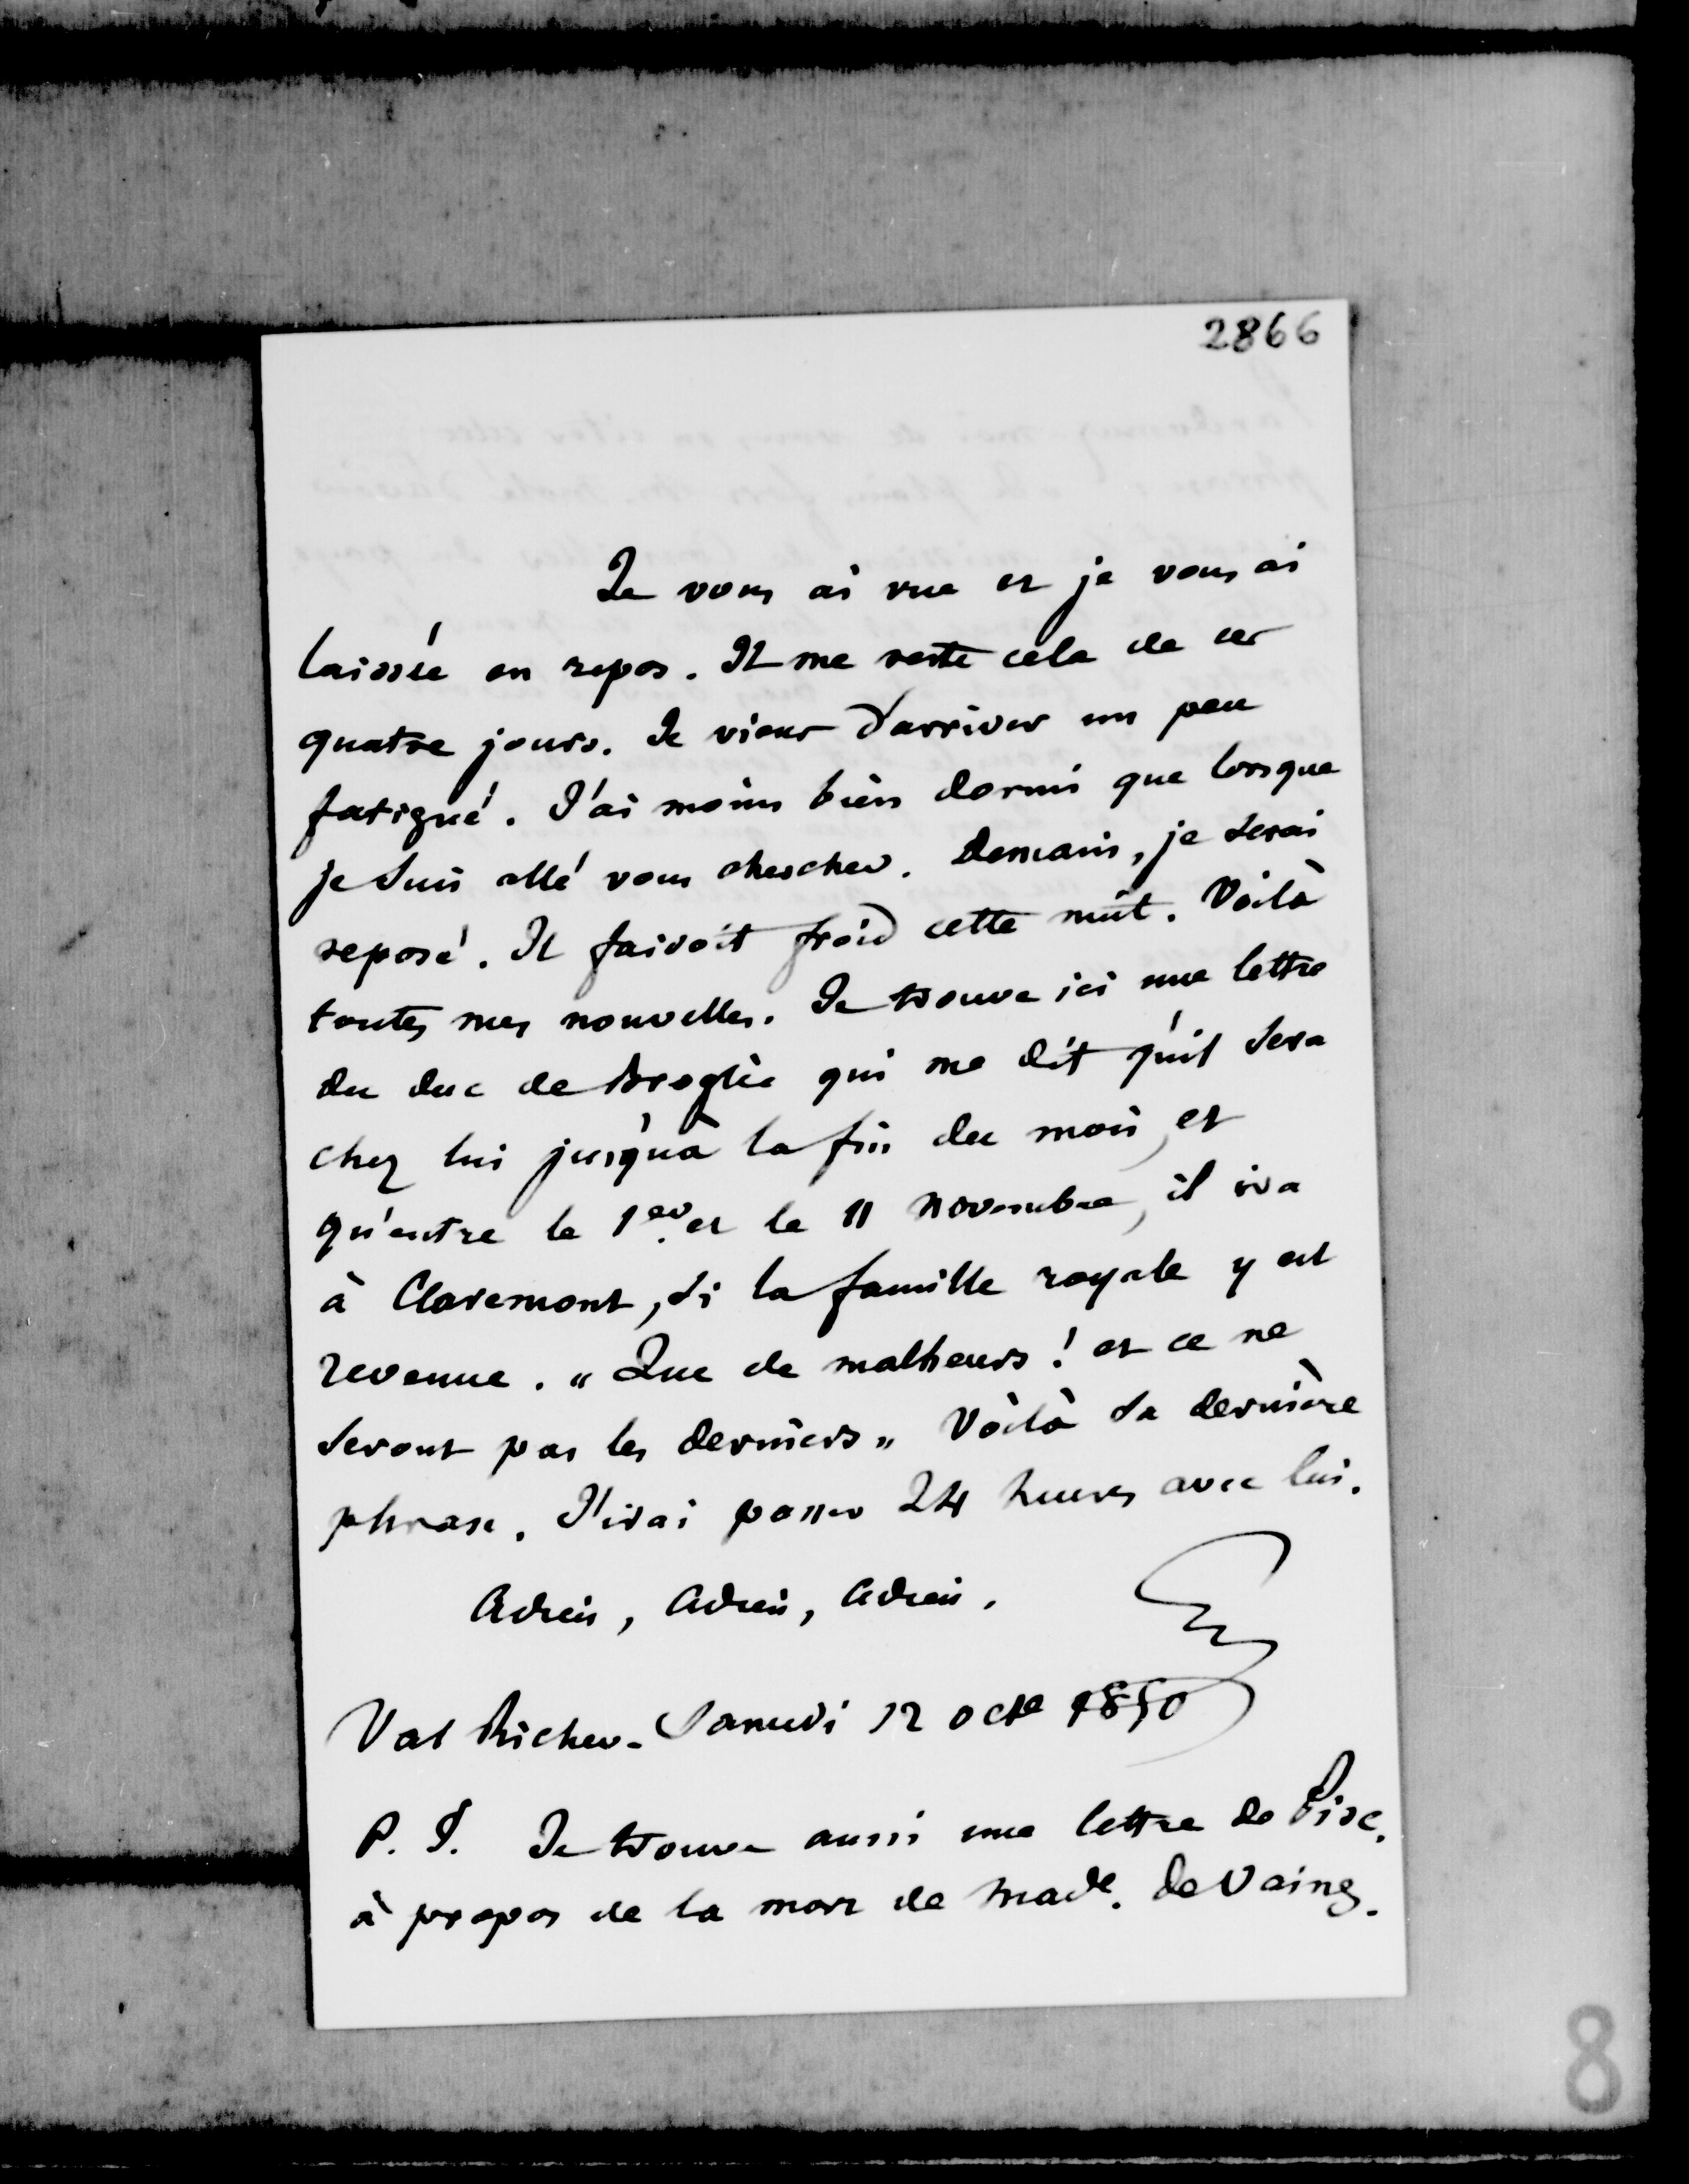 2866
Je vous ai vue et je vous ai
laissée en repos. Il me reste cela de ces
quatre jours. Je viens d'arriver un peu
fatigué. J'ai moins bien dormi que lorsque
je suis allé vous chercher. Demain, je serai
reposé. Il faisoit froid cette nuit. Voilà
toutes mes nouvelles. Je trouve ici une lettre
du duc de Broglie qui me dit qu'il sera
chez lui jusqu'à la fin du mois, et
qu'entre le 1er et le 11 novembre, il ira
à Claremont, si la famille royale y est
revenue. "Que de malheurs ! et ce ne
seront pas les derniers" Voilà sa dernière
phrase. J'irai passer 24 heures avec lui.
Adieu, Adieu, Adieu.
Val Richer. Samedi 12 octe 1850
P. S. Je trouve aussi une lettre de Pise.
à propos de la mort de Made. de Vaines.
8